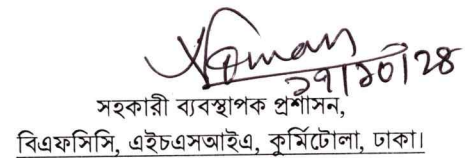 ১৭/১০/২৪
সহকারী ব্যবস্থাপক প্রশাসন,
বিএফসিসি, এইচএসআইএ, কুর্মিটোলা, ঢাকা।